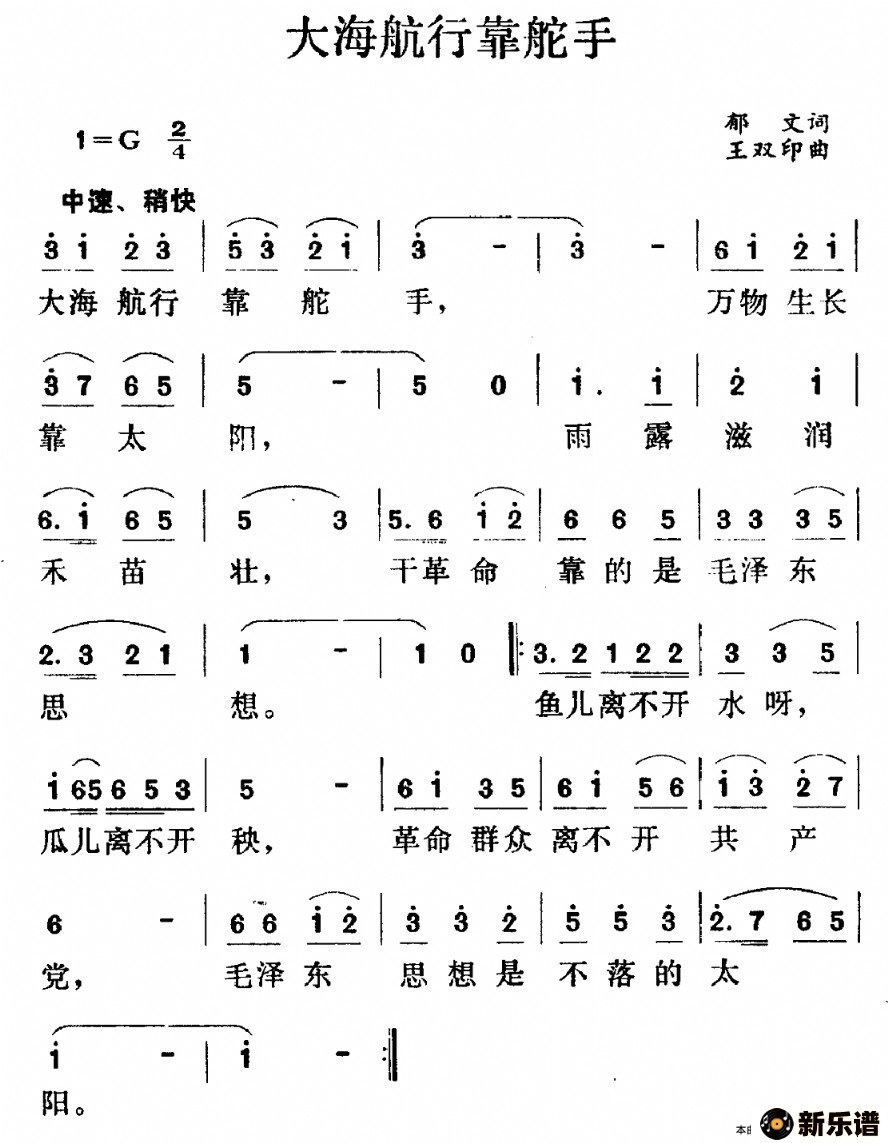 大海航行靠舵手
郁 文词
1=G 2/4
王双印曲
中速、稍快
3 1 2 3 | 5 3 2 1 | 3 - | 3 - | 6 1 2 1 |
大海 航行 靠 舵 手， 万物 生长
3 7 6 5 | 5 - | 5 0 | 1 . 1 | 2 1 |
靠 太 阳， 雨 露 滋 润
6. 1 6 5 | 5 3 | 5. 6 1 2 | 6 6 5 | 3 3 3 5 |
禾 苗 壮， 干革 命 靠 的 是 毛泽 东
2. 3 2 1 | 1 - | 1 0 |: 3. 2 1 2 2 | 3 3 5 |
思 想。 鱼儿离不开 水 呀，
1 65 6 5 3 | 5 - | 6 1 3 5 | 6 1 5 6 | 1 3 2 7 |
瓜儿离不开 秧， 革命 群众 离不 开 共 产
6 - | 6 6 1 2 | 3 3 2 | 5 5 3 | 2. 7 6 5 |
党， 毛泽 东 思 想 是 不 落 的 太
1 - | 1 - :|
阳。
新乐谱